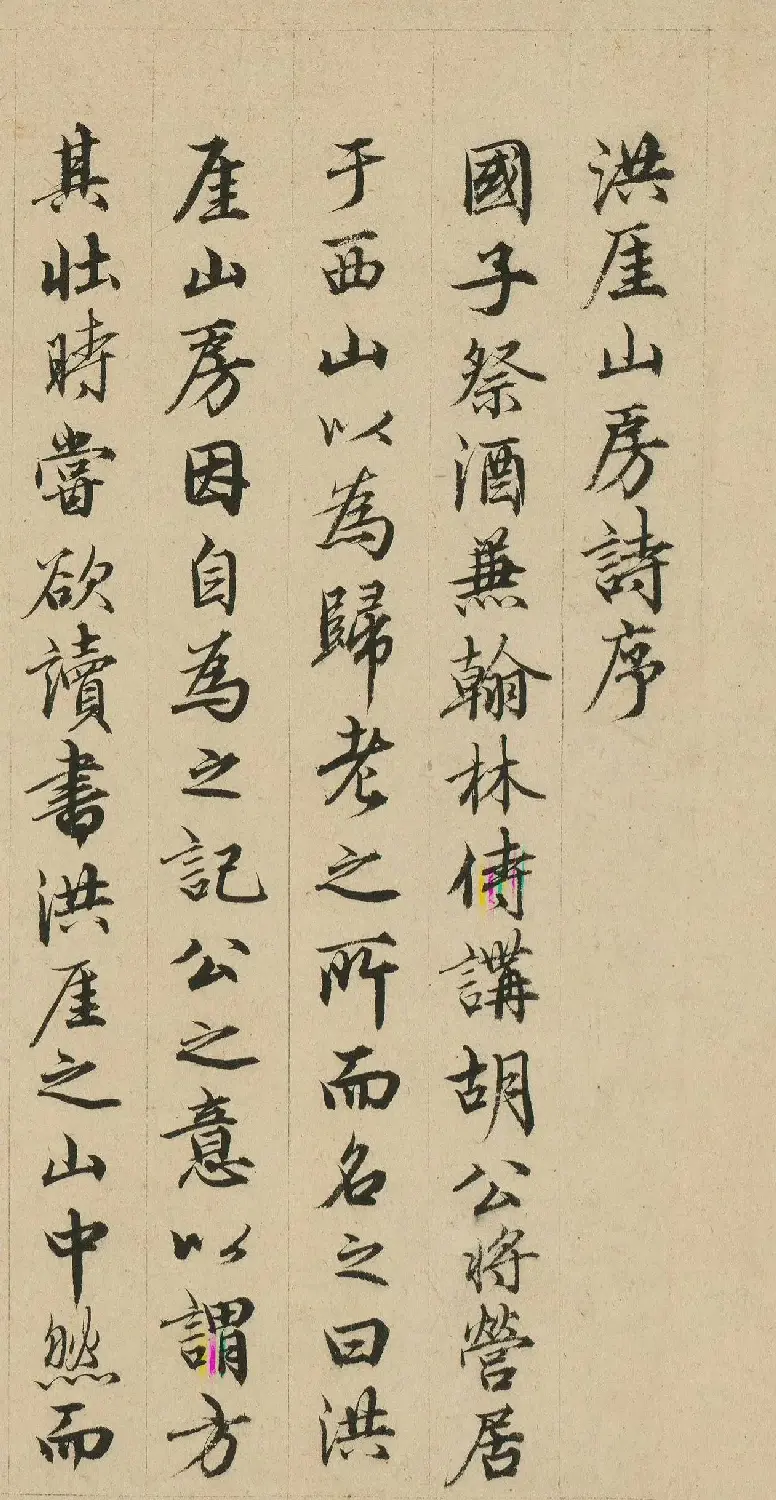 洪厓山房詩序
國子祭酒兼翰林侍講胡公將營居
于西山以為歸老之所而名之曰洪
厓山房因自為之記公之意以謂方
其壯時嘗欲讀書洪厓之山中然而